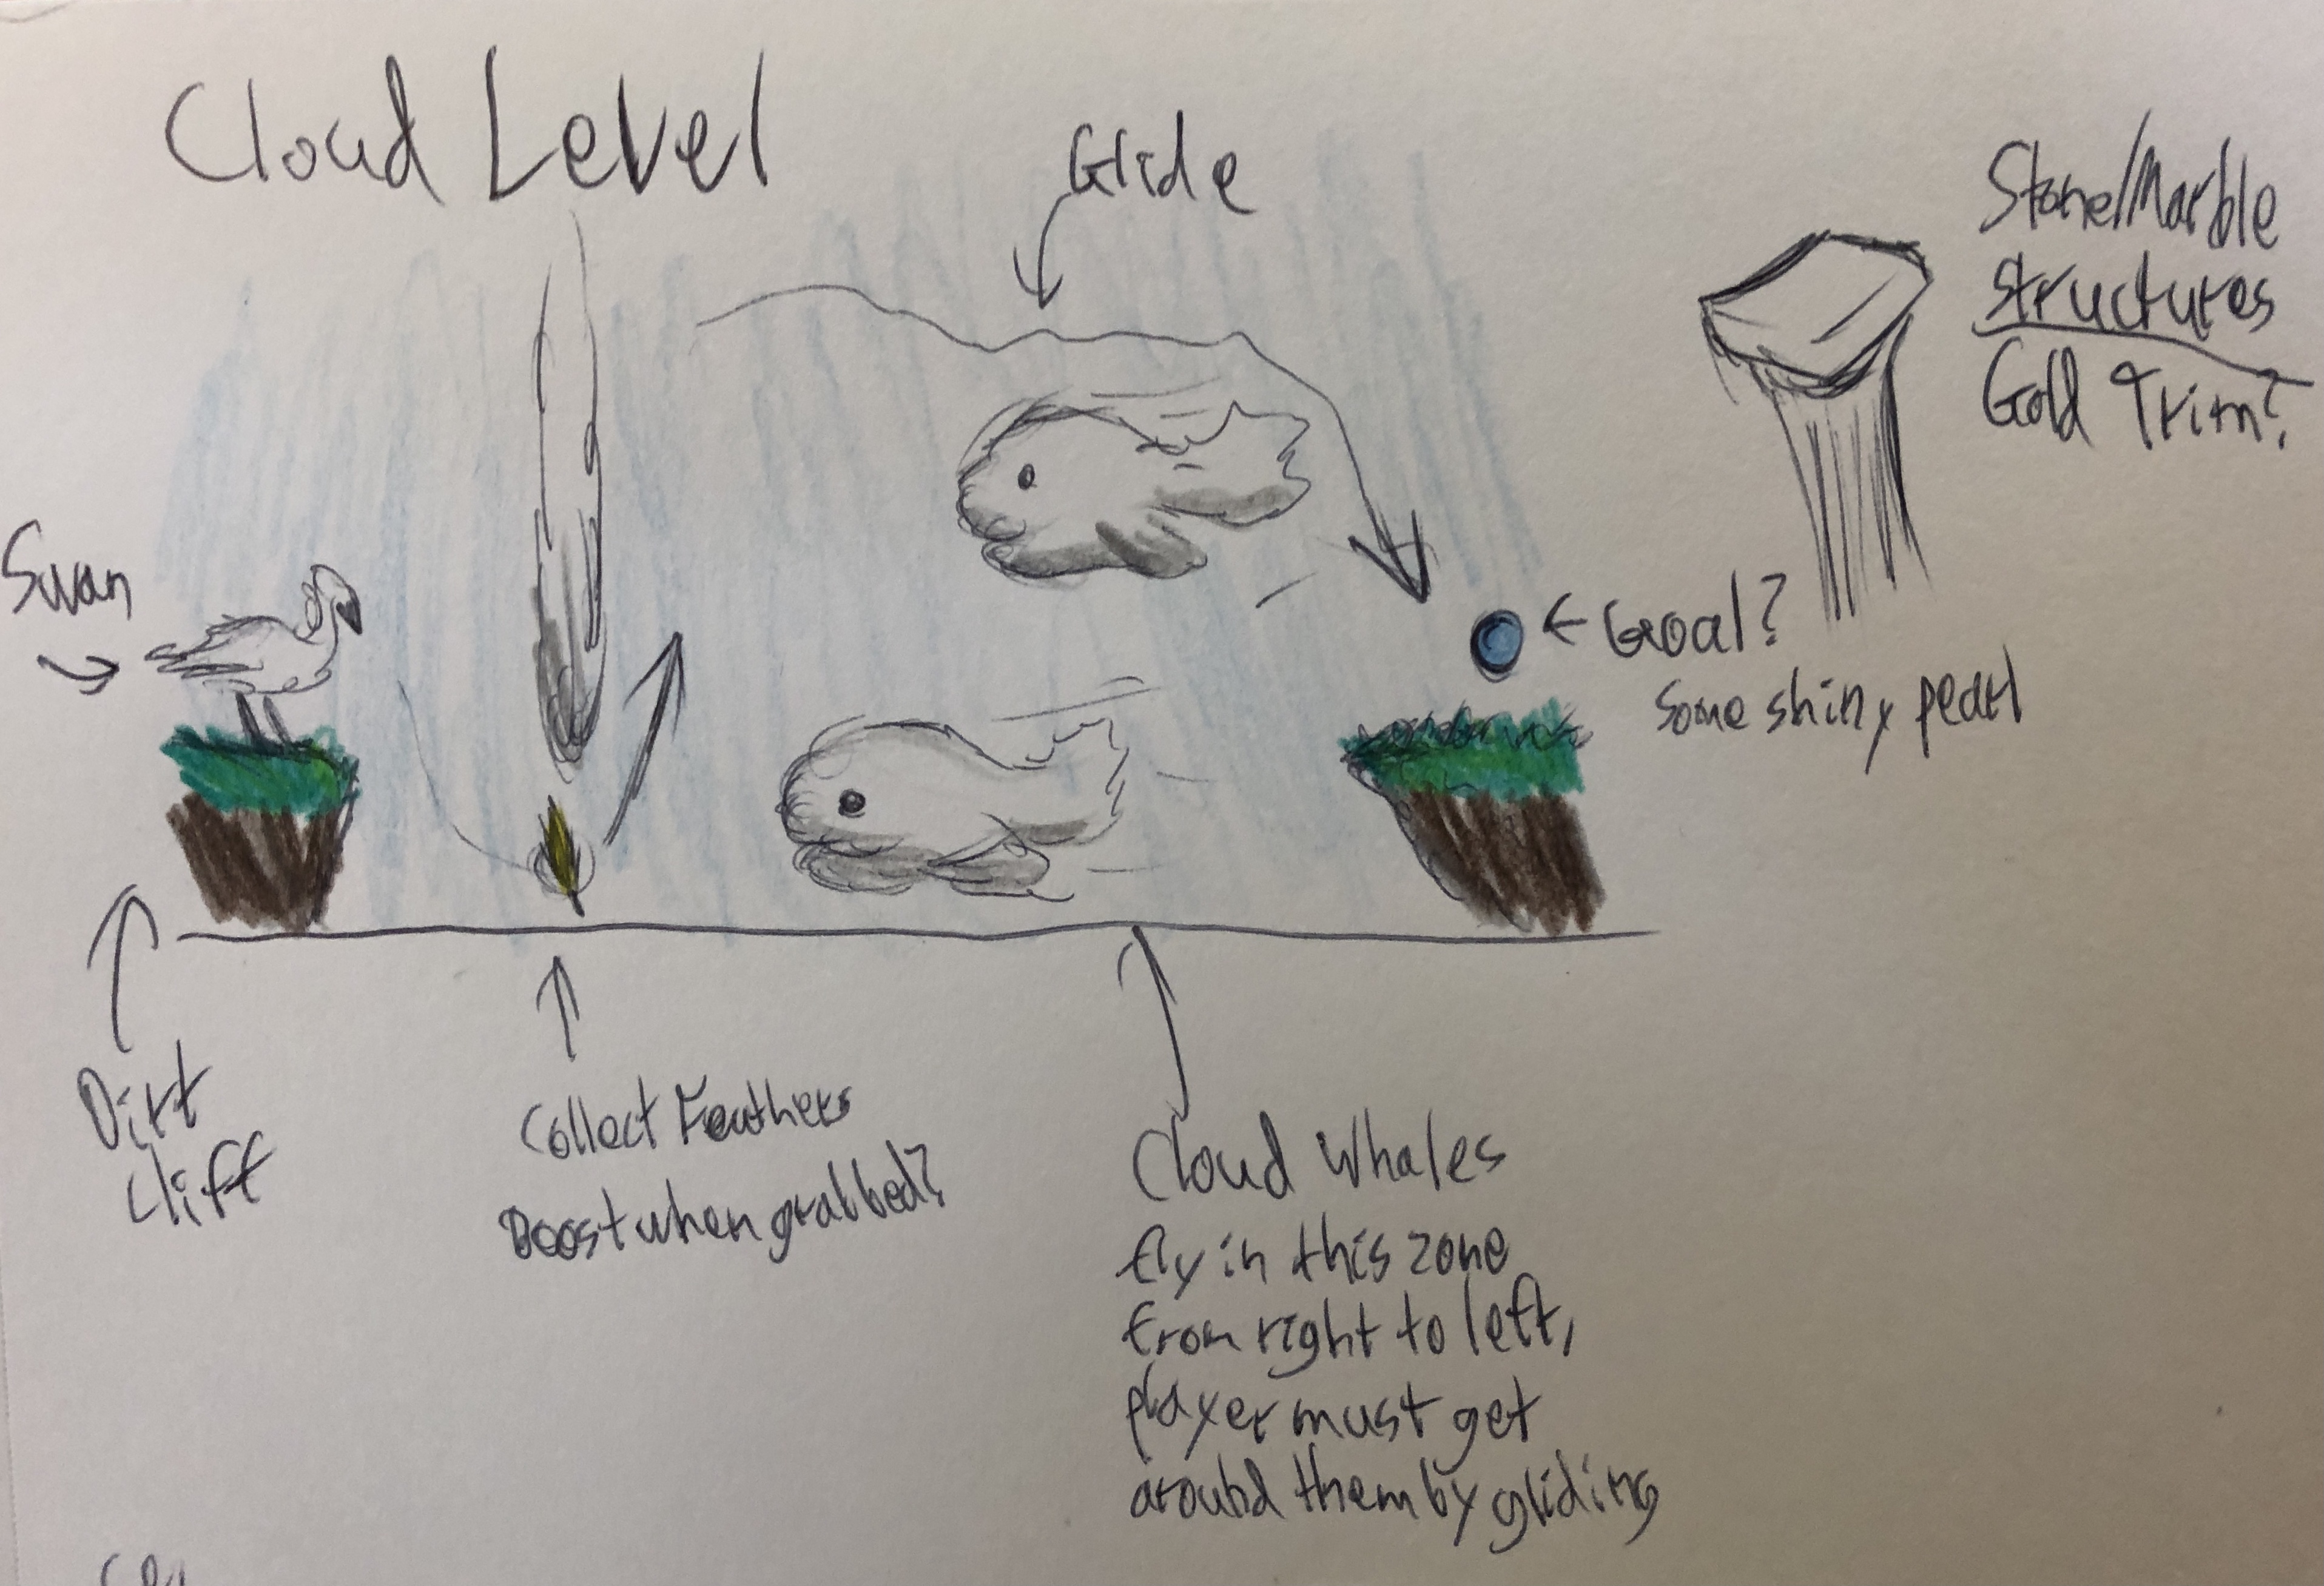 Cloud Level
Glide
Stone/Marble
structures
Gold Trim?
Swan
← Goal?
Some shiny pearl
Dirt
Cliff
Collect Feathers
Boost when grabbed?
Cloud Whales
fly in this zone
from right to left,
player must get
around them by gliding